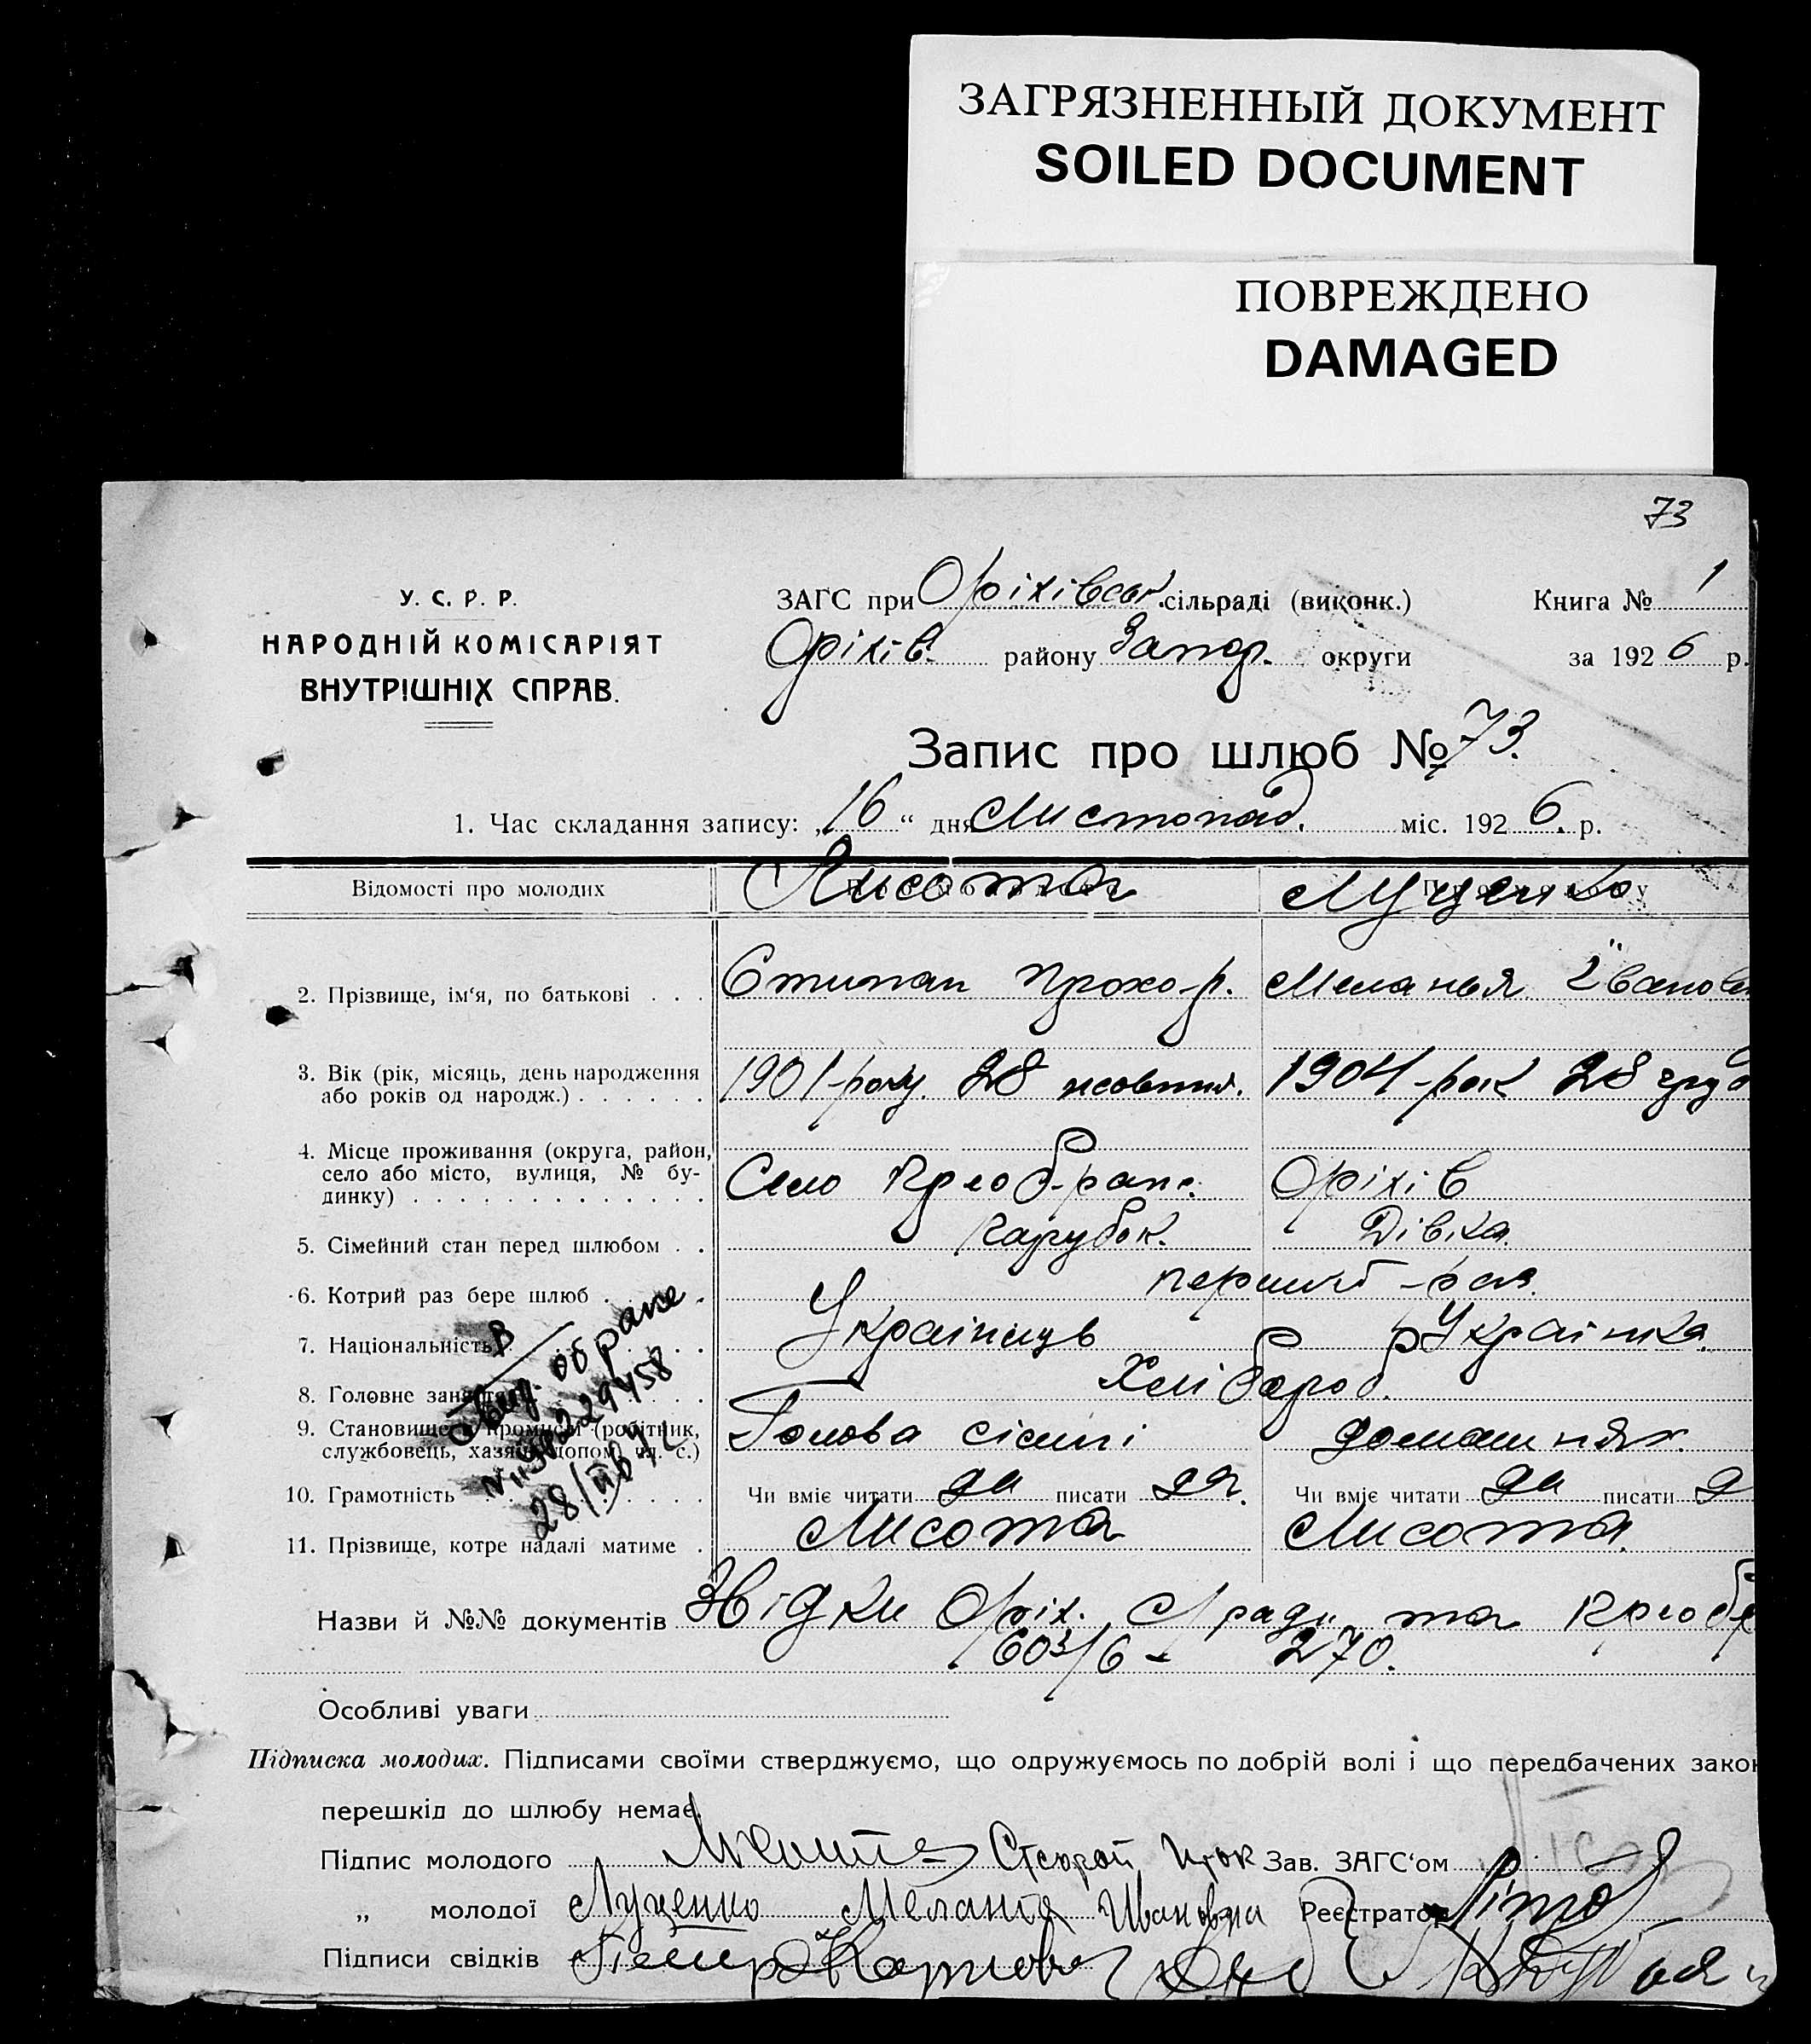 ЗАГРЯЗНЕННЫЙ ДОКУМЕНТ
SOILED DOCUMENT
ПОВРЕЖДЕНО
DAMAGED
73
У. С. Р. Р.
НАРОДНІЙ КОМІСАРІЯТ
ВНУТРІШНІХ СПРАВ.
ЗАГС при Оріхівськ. сільраді (виконк.) Книга № 1
Оріхів. району Запор. округи за 1926 р.
Запис про шлюб № 73.
1. Час складання запису: „16“ дня Листопад. міс. 1926. р.
Відомості про молодих Лисота Луценко
2. Прізвище, ім‘я, по батькові . . . Стипан Прохо-р. Меланья Іванов
3. Вік (рік, місяць, день народження
або років од народж.) . . . . . . 1901-року. 28 жовтня. 1904-рок 28 груд
4. Місце проживання (округа, район,
село або місто, вулиця, № бу-
динку) . . . . . . . . . . . . . Село Преображ. Оріхів
5. Сімейний стан перед шлюбом . . Парубок. Дівка.
6. Котрий раз бере шлюб . . . . . перший-раз.
7. Національність . . . . . . . . Українець Українка.
8. Головне заняття . . . . . . . Хлібороб.
9. Становище в промислі (робітник,
службовець, хазяїн, допом. чл. с.) Голова сімї домашняя.
10. Грамотність . . . . . . . . . Чи вміє читати да писати да. Чи вміє читати да писати д
11. Прізвище, котре надалі матиме . Лисота Лисота.
28/
Назви й №№ документів Звідки Оріх. С/ради та Преобр
603/6 - 270.
Особливі уваги
Підписка молодих. Підписами своїми стверджуємо, що одружуємось по добрій волі і що передбачених закон
перешкід до шлюбу немає.
Підпис молодого Зав. ЗАГС‘ом
„ молодої Луценко Мелания Ивановна Реєстратор
Підписи свідків Петр